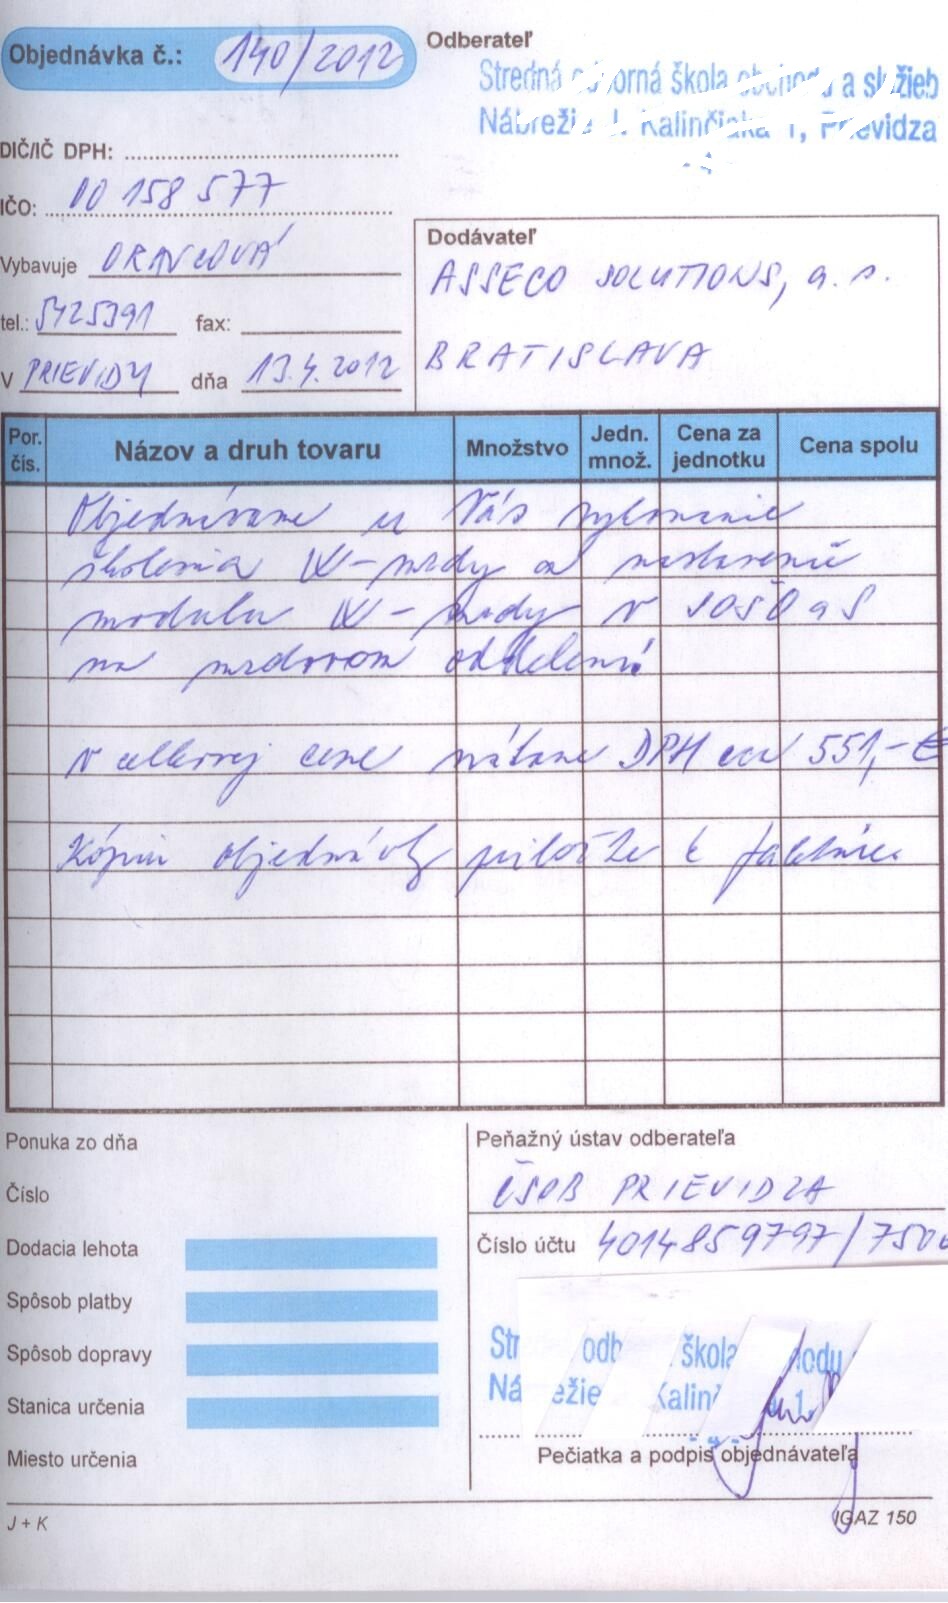 Objednávka č.: 140/2012
Odberateľ
Stredná odborná škola obchodu a služieb
Nábrežie J. Kalinčiaka 1, Prievidza
DIČ/IČ DPH:
IČO: 00 158 577
Vybavuje ORAVCOVÁ
tel.: 5425391 fax:
V PRIEVIDZI dňa 13.4.2012
Dodávateľ
ASSECO SOLUTIONS, a.s.
BRATISLAVA
Por. čís. Názov a druh tovaru Množstvo Jedn. množ. Cena za jednotku Cena spolu
Objednávame u Vás vykonanie
školenia W-mzdy a nastavenie
modulu W-mzdy v SOŠO a S
na mzdovom oddelení.
V celkovej cene vrátane DPH cca 551,- €
Kópiu objednávky priložte k faktúre.
Ponuka zo dňa
Číslo
Dodacia lehota
Spôsob platby
Spôsob dopravy
Stanica určenia
Miesto určenia
Peňažný ústav odberateľa
ČSOB PRIEVIDZA
Číslo účtu 4014859797/7500
Str odb škola hodu
Ná režie Kalinč 1,
Pečiatka a podpis objednávateľa
J + K
IGAZ 150